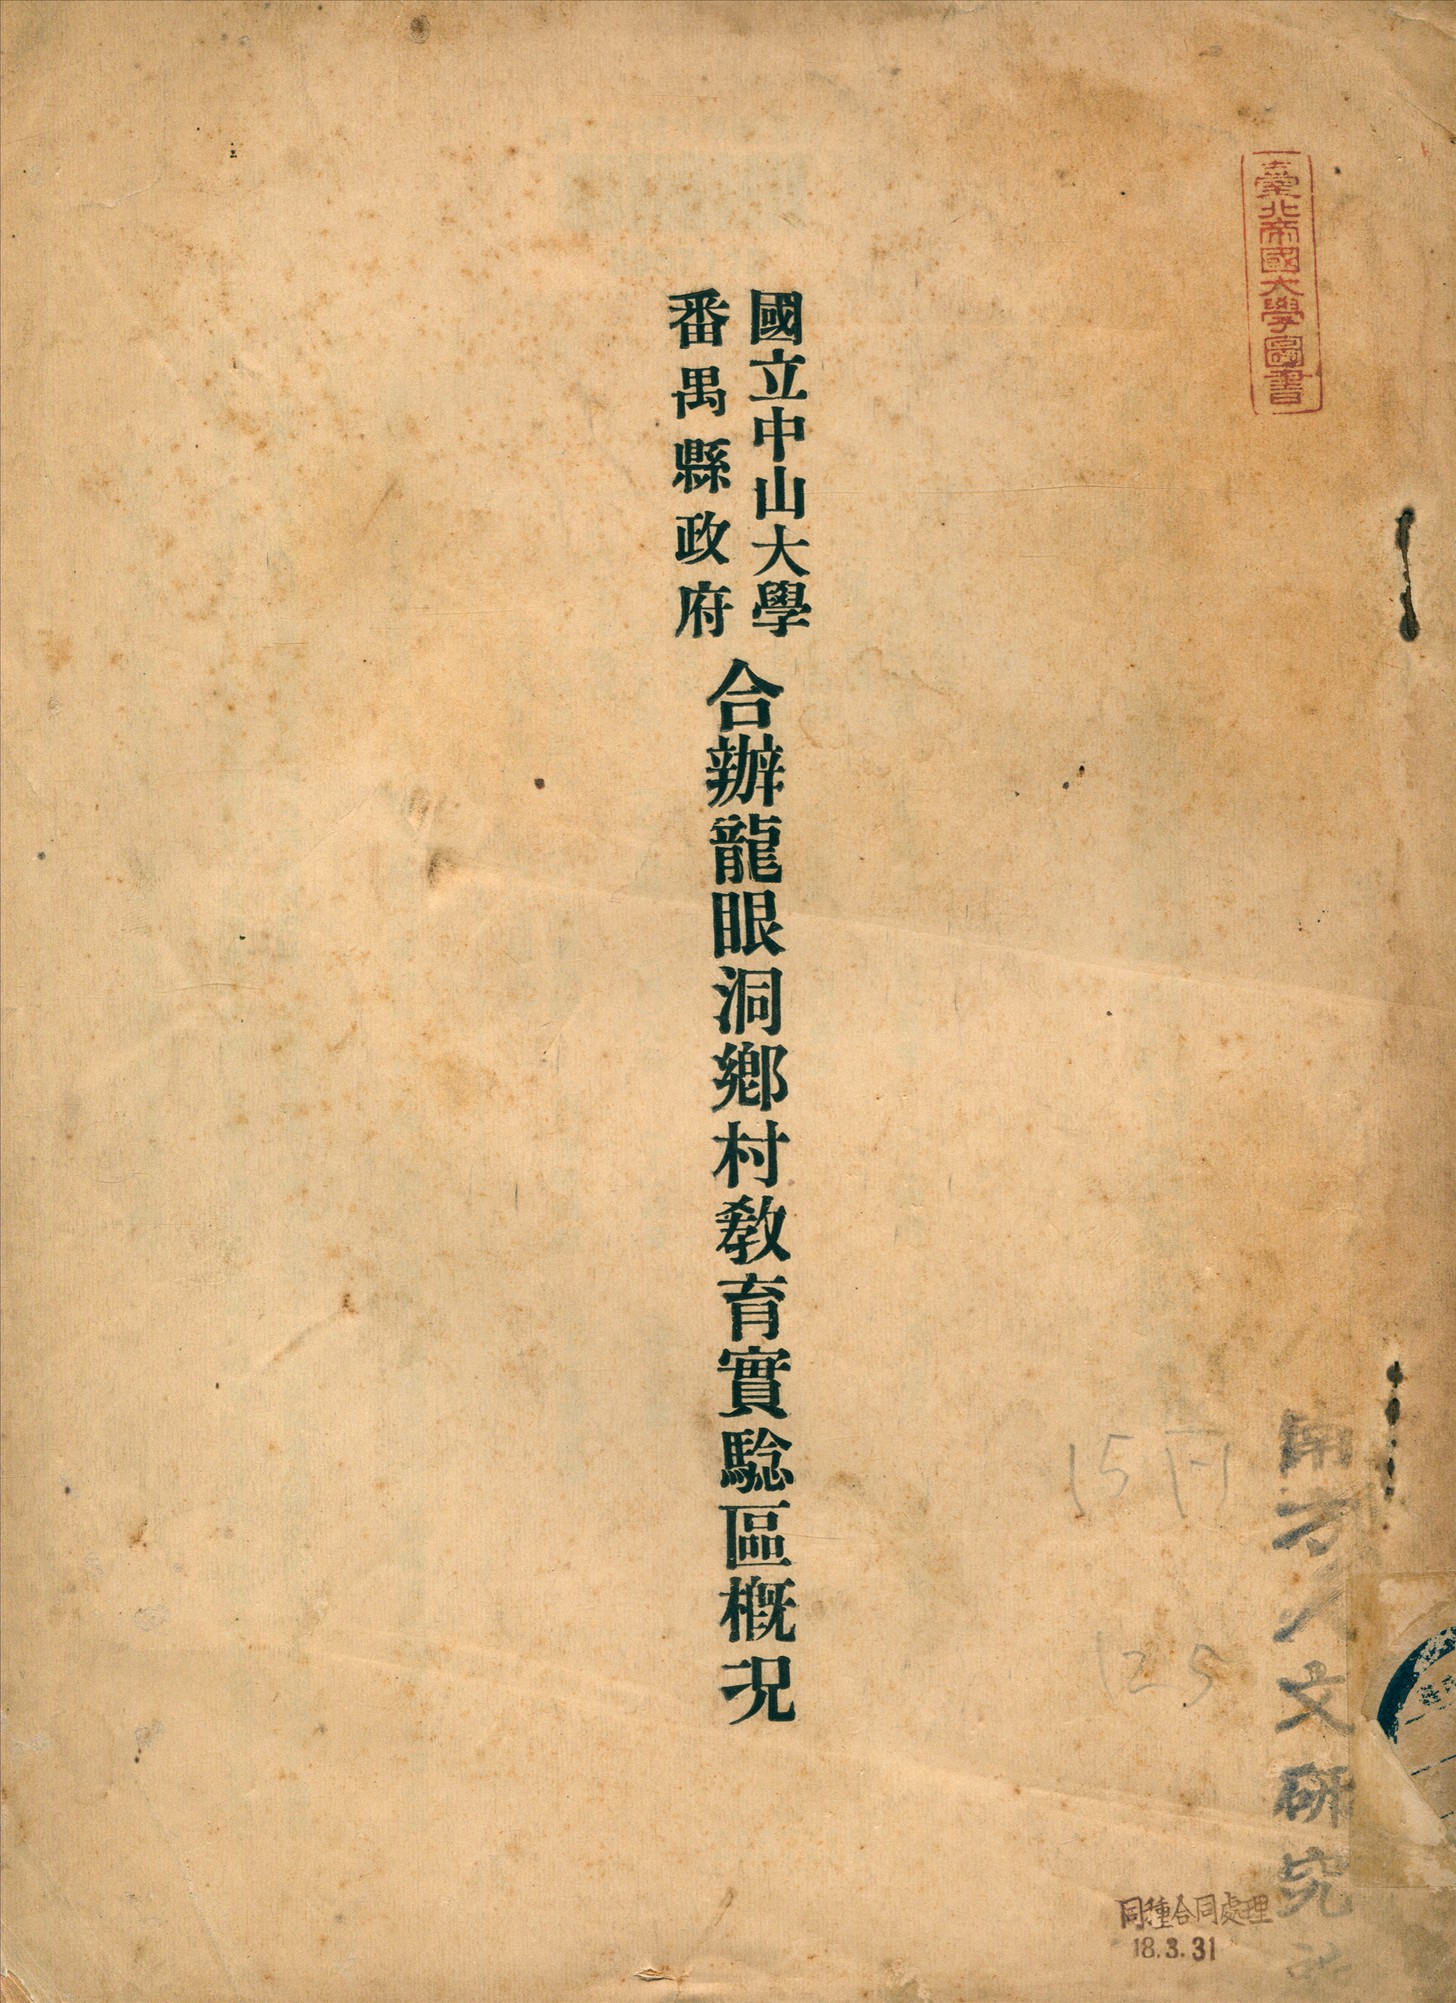 臺北帝國大學圖書
國立中山大學
番禺縣政府
合辦龍眼洞鄉村教育實驗區概况
15
125
南方人文研究所
同種合同處理
18.3.31